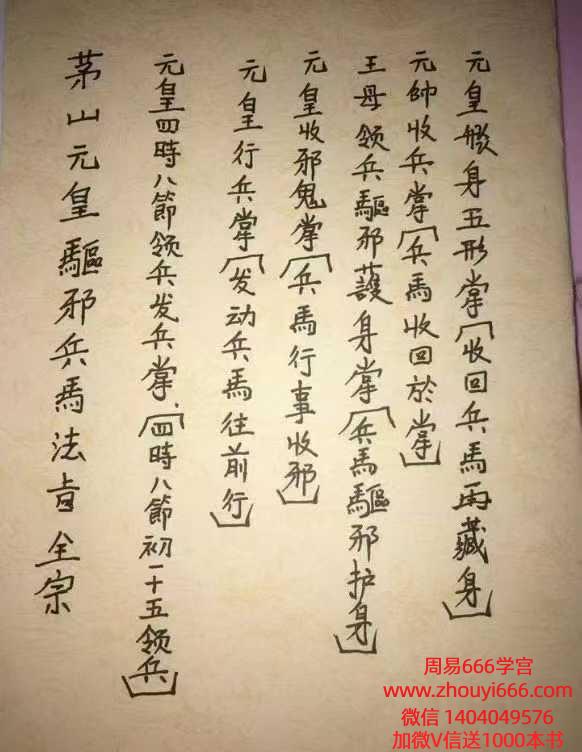 茅山元皇驅邪兵馬法旨全宗
元皇四時八節领兵发兵掌、「四時八節初一十五领兵」
元皇行兵掌「发动兵馬往前行」
元皇收邪鬼掌「兵馬行事收邪」
王母领兵驅邪護身掌「兵馬驅邪护身」
元帥收兵掌「兵馬收回於掌」
元皇身五形掌「收回兵馬再藏身」
周易666学宫
www.zhouyi666.com
微信 1404049576
加微V信送1000本书